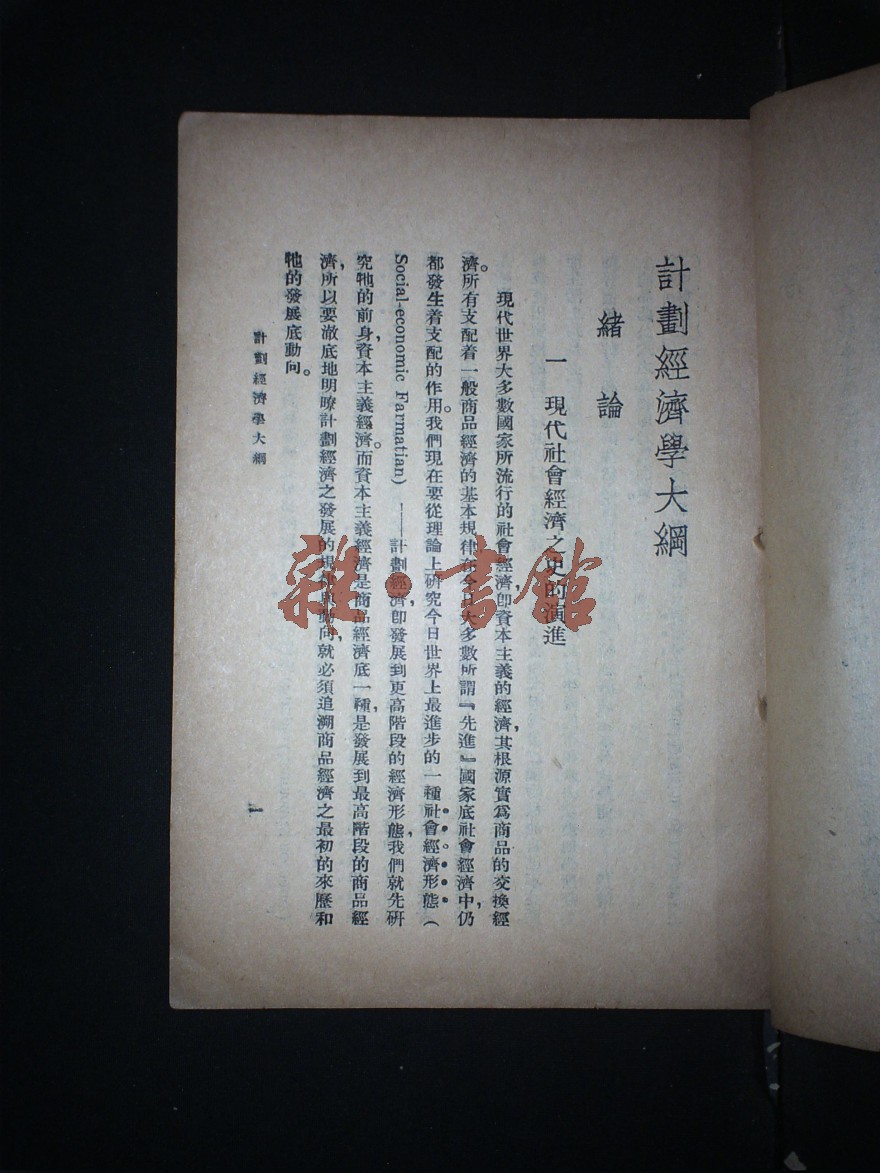 計劃經濟學大綱
緒論
一 現代社會經濟之史的演進
現代世界大多數國家所流行的社會經濟,卽資本主義的經濟,其根源實爲商品的交換經
濟。所有支配着一般商品經濟的基本規律,在今日大多數所謂『先進』國家底社會經濟中,仍
都發生着支配的作用。我們現在要從理論上硏究今日世界上最進步的一種社會經濟形態(
Social-economic Farmatian)——計劃經濟,卽發展到更高階段的經濟形態,我們就先硏
究牠的前身,資本主義經濟。而資本主義經濟是商品經濟底一種,是發展到最高階段的商品經
濟,所以要澈底地明瞭計劃經濟之發展的規律與動向,就必須追溯商品經濟之最初的來歷和
牠的發展底動向。
計劃經濟學大綱
一
雜·書館